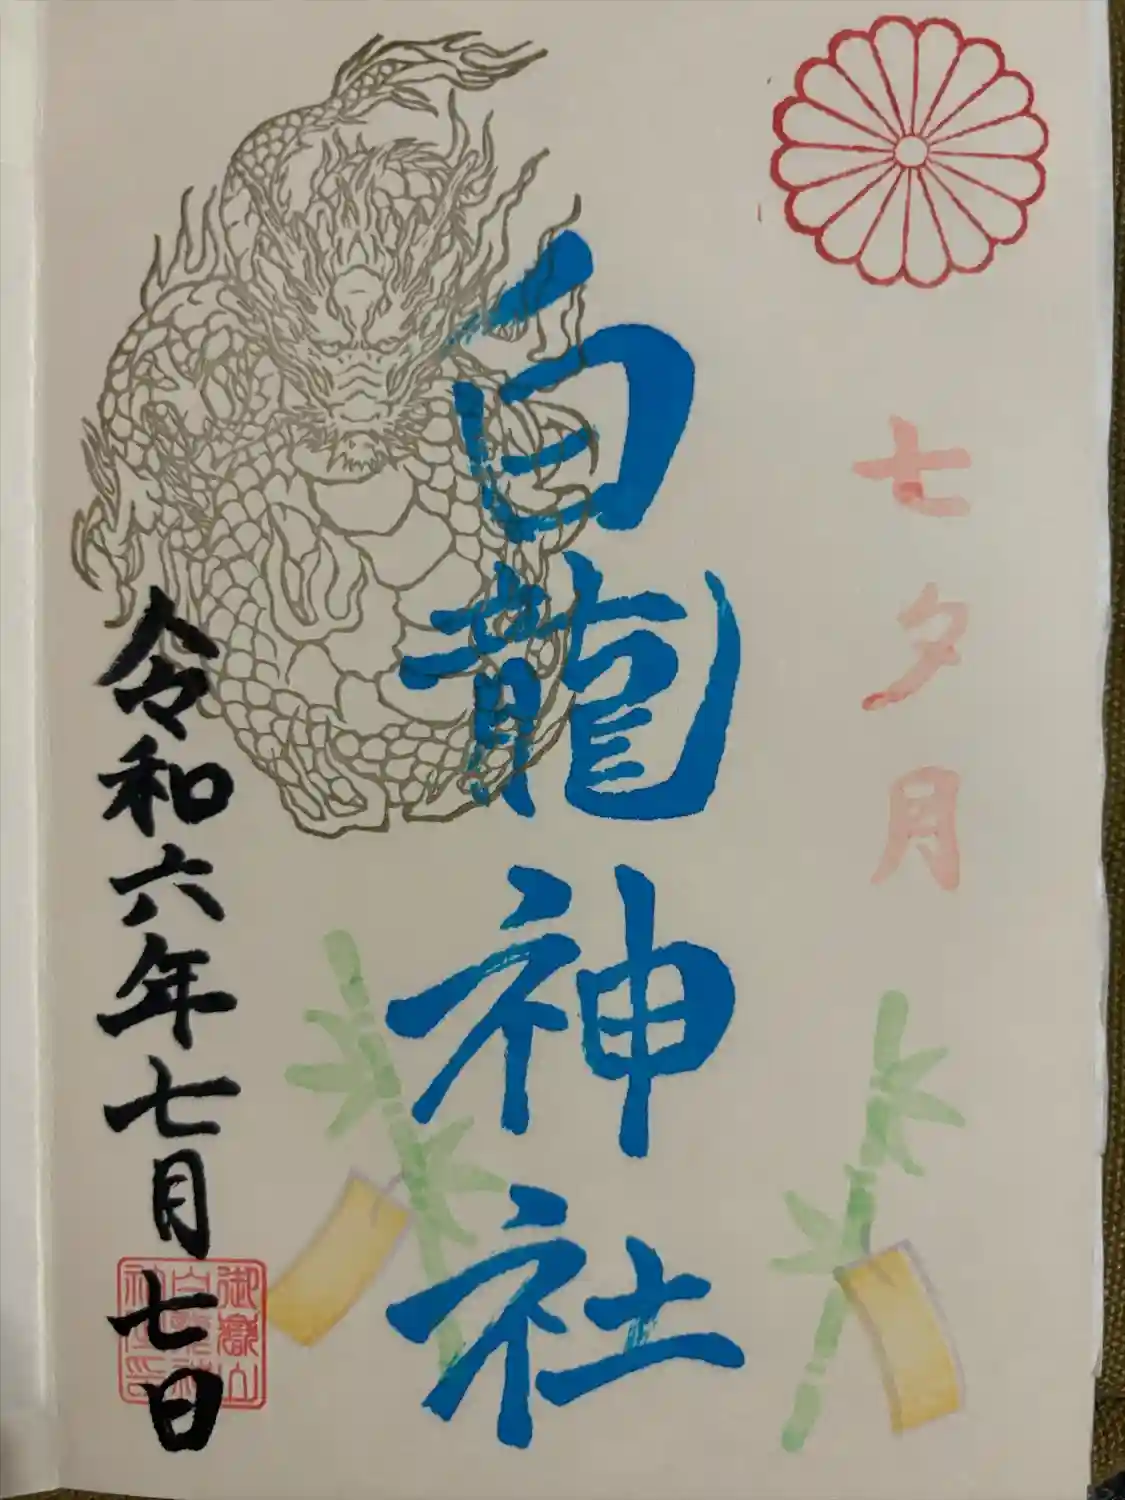 七夕月
白龍神社
令和六年七月七日
御嶽山
白龍神
社之印